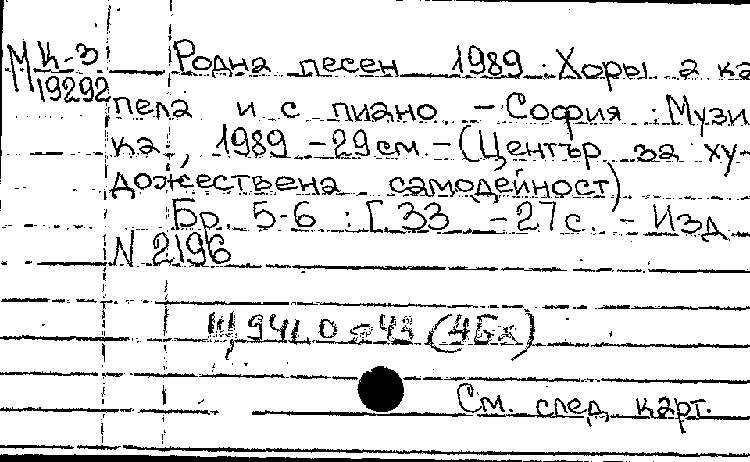 М К-3
19292
Родна песен 1989. Хоры а ка
пела и с пиано - София : Музи
ка, 1989 - 29 см - (Център за ху-
дожествена самодейност)
Бр. 5-6 : Г. 33 - 27 с. - Изд
N 2196
Щ941.0 я43 (4Бх)
См. след карт.